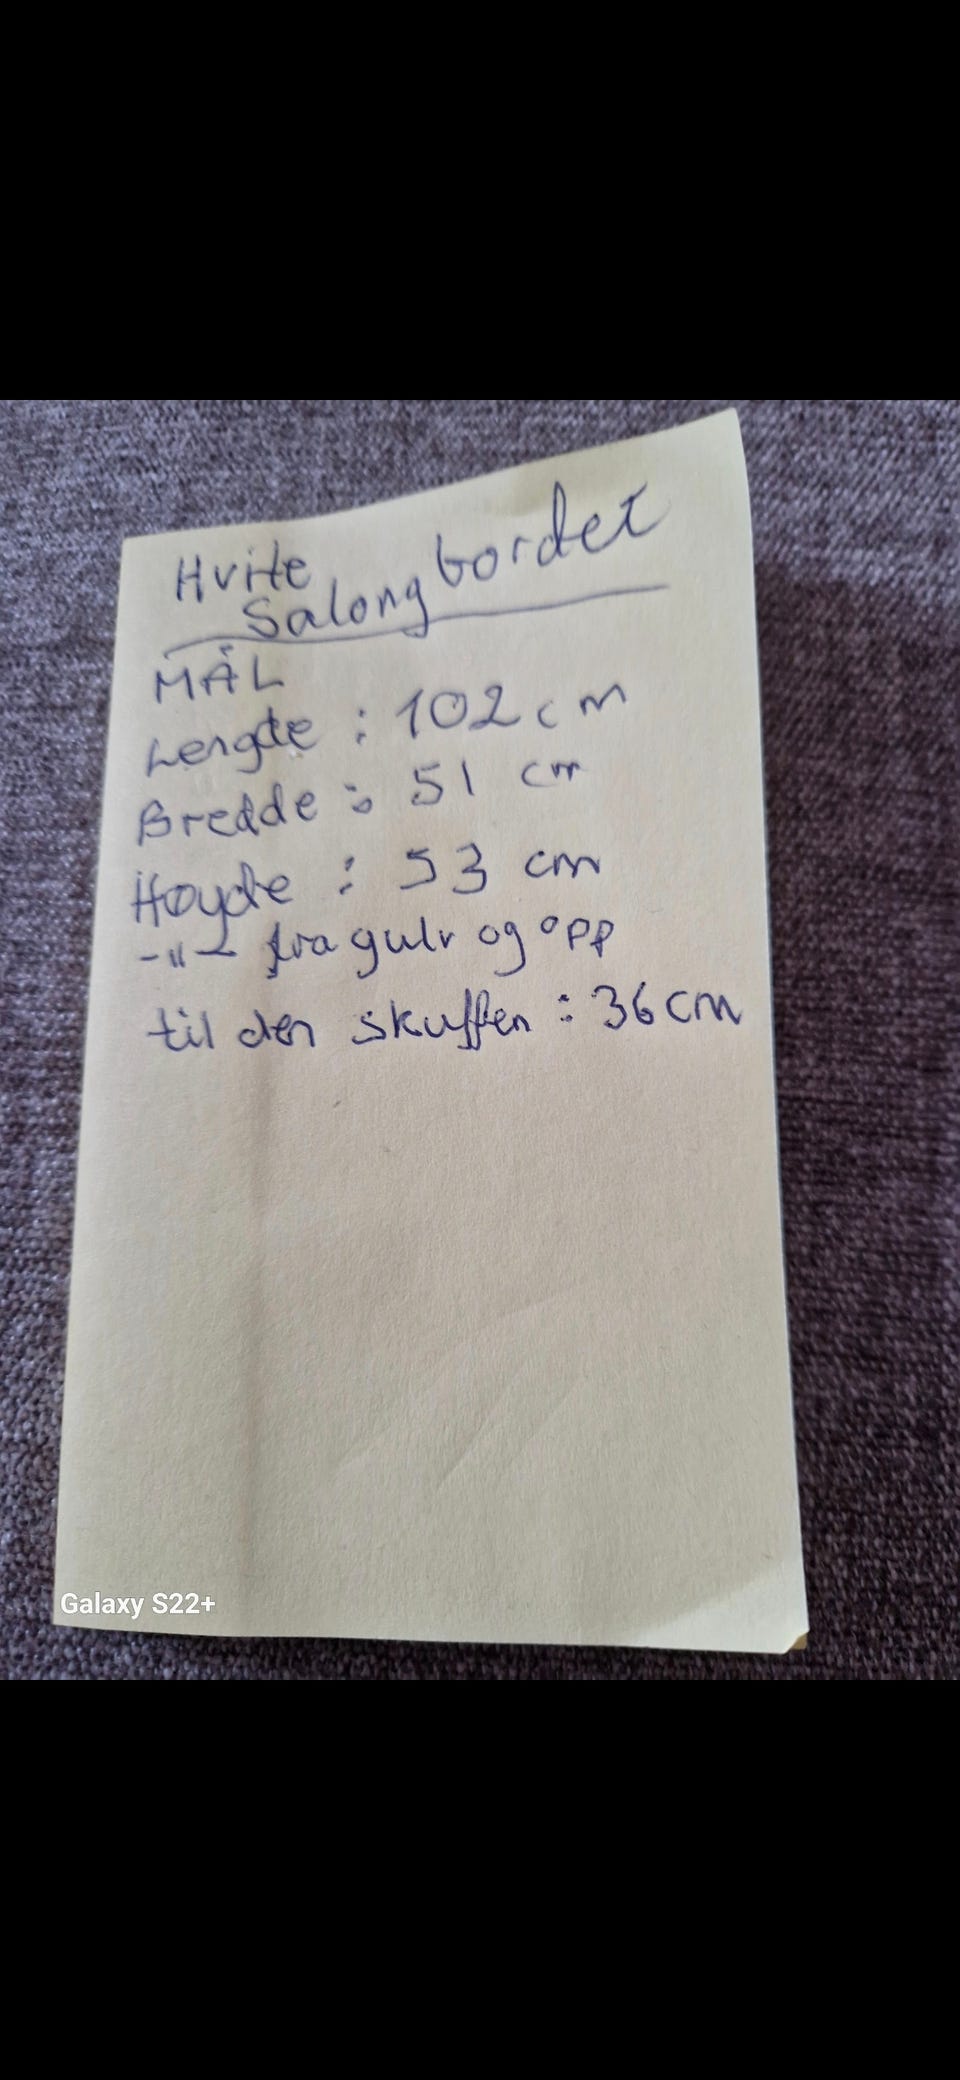 Hvite
Salongbordet
MÅL
Lengde : 102 cm
Bredde : 51 cm
Høyde : 53 cm
-"- fra gulv og opp
til den skuffen : 36 cm
Galaxy S22+